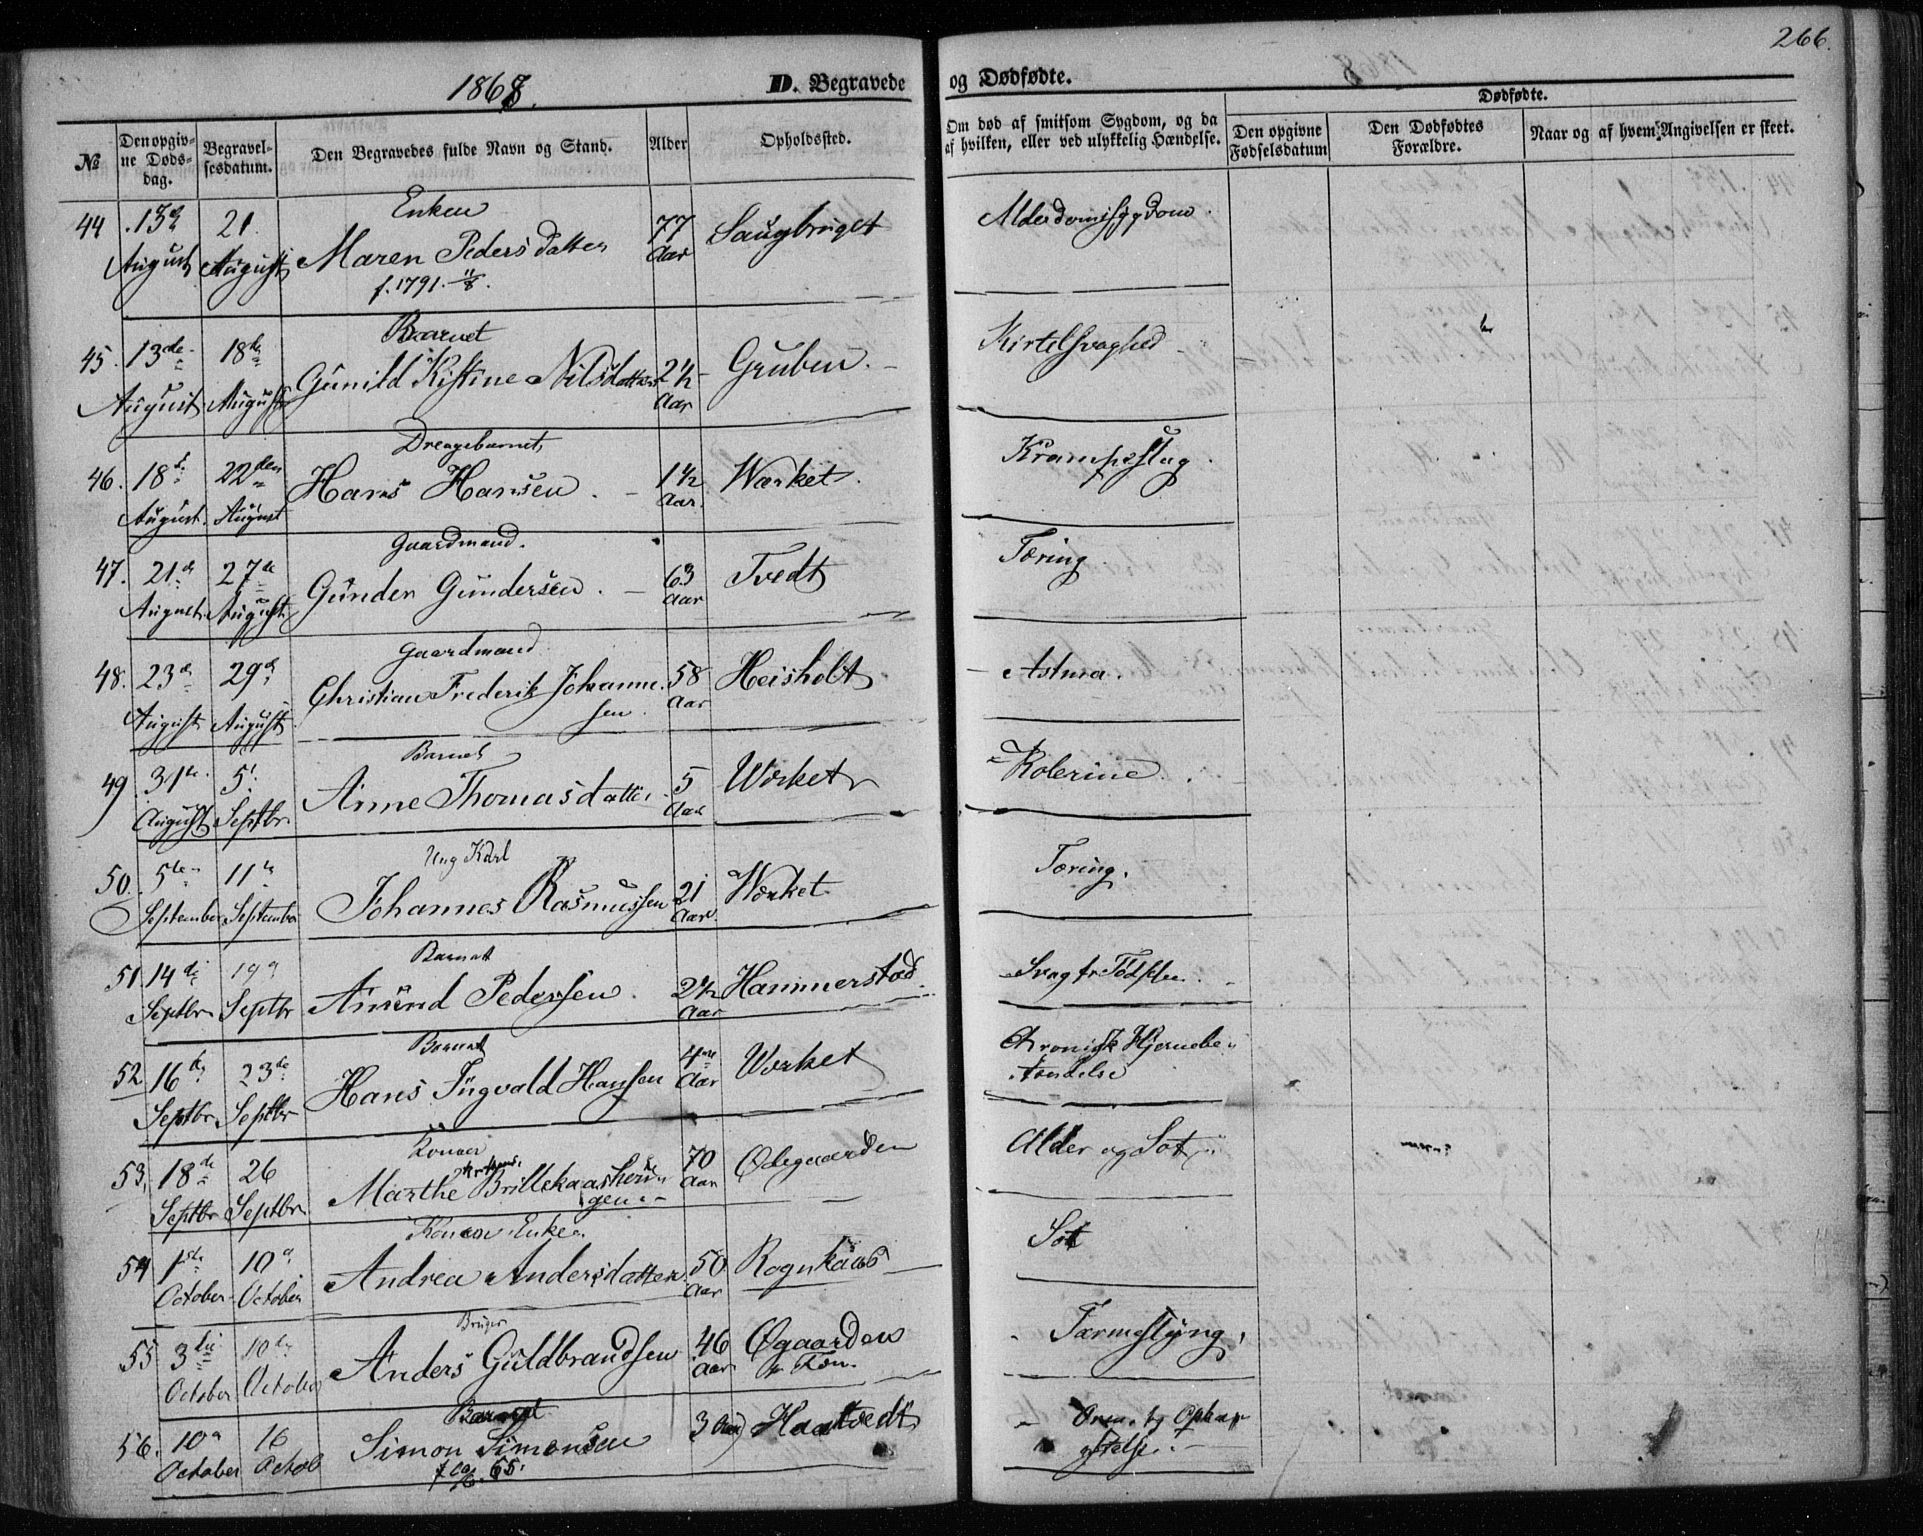 1868.
D. Begravede og Dødfødte.
1868
266.
№
Den opgivne Dødsdag.
Begravelsesdatum.
Den Begravedes fulde Navn og Stand.
Alder
Opholdssted.
Om død af smitsom Sygdom, og da af hvilken, eller ved ulykkelig Hændelse.
Dødfødte.
Den opgivne Fødselsdatum
Den Dødfødtes Forældre.
Naar og af hvem Angivelsen er skeet.
44 13de August 21. August Enken Maren Pedersdatter f. 1791. 11/8. 77 Aar Saugbruget Alderdomssygdom.
45. 13de August 18de August Barnet Gunild Kistine Nilsdatter 2½ Aar Gruben. Kirtelsvaghed
46. 18de August. 22den August Drengebarnet Hans Hansen. 1½ Aar. Værket. Krampeslag.
47. 21de August 27de August Gaardmand. Gunder Gundersen. 63 Aar Tvedt Tæring
48. 23de August 29de August Gaardmand Christian Frederik Johannesen 58 Aar Heisholt Astma.
49 31te August 5te Septbr Barnet Anne Thomasdatter 5 Aar Værket Kolerine.
50. 5te September 11te September Ung Karl Johannes Rasmussen 21 Aar. Værket Tæring.
51 14de Septbr 19de Septbr Barnet Amund Pedersen. 2½ Aar Hammerstad Svag fr Fødslen.
52 16de Septbr 23de Septbr Barnet Hans Ingvald Hansen 4re Aar Værket Chronisk Hjernebetændelse
53. 18de Septbr 26 Septbr Konen Marthe 70 Aar Ødegaarden Alder og Sot
54 1ste October 10de October Konen Enken Andrea Andersdatter 50 Aar Rognkaas Sot
55 3die October 10de October Bruger Anders Guldbrandsen 46 Aar Øgaarden
56. 10de October 16 Octob Barnet Simon Simonsen 65. 3 Aar Haatvedt